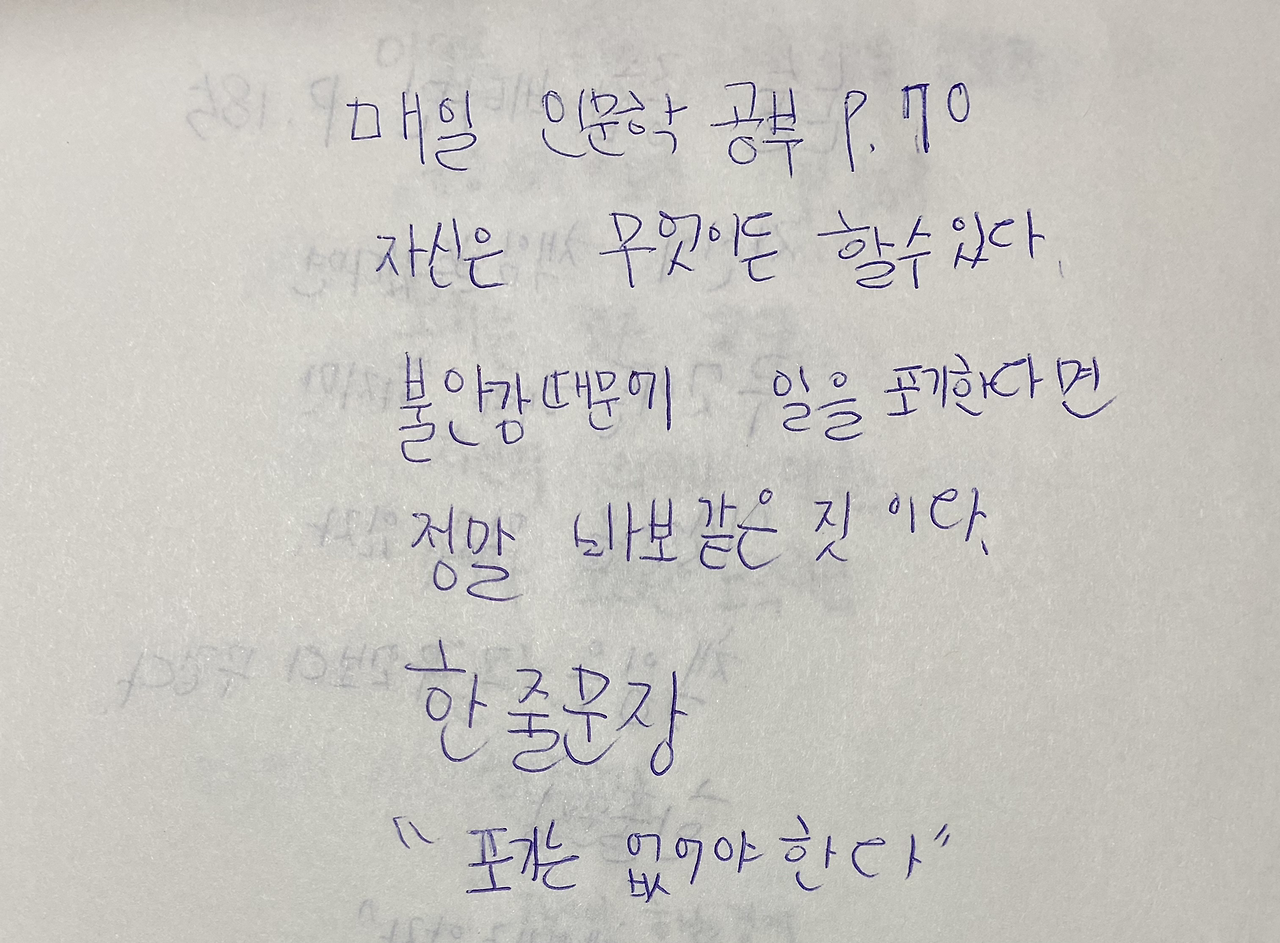 매일 인문학 공부 P.70
자신은 무엇이든 할수있다.
불안감때문에 일을 포기한다면
정말 바보같은 짓이다.
한줄문장
"포기는 없어야한다"